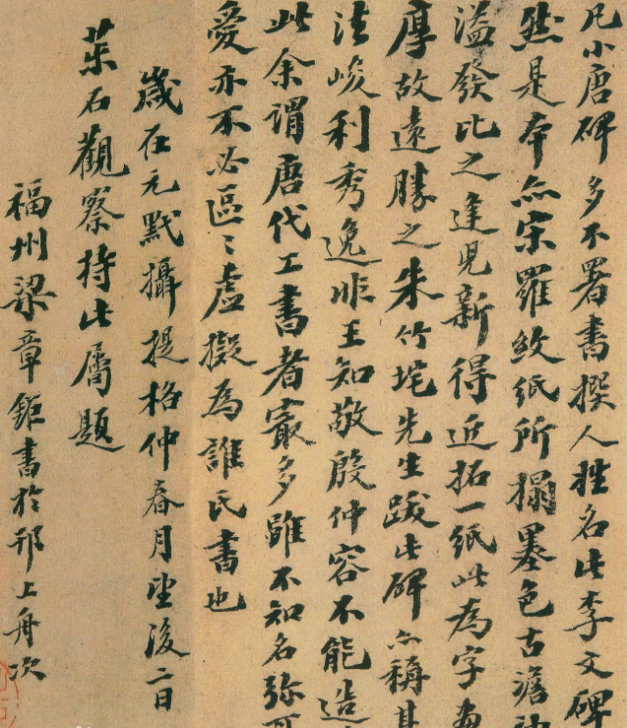 凡小唐碑多不署書撰人姓名此李文碑
然是本亦宋羅紋紙所搨墨色古澹
溢發比之逢兒新得近拓一紙此為字畫
厚故遠勝之朱竹垞先生跋此碑亦稱其
法峻利秀逸非王知敬殷仲容不能造
此余謂唐代工書者㝡多雖不知名弥可
愛亦不必區〻虛擬為誰氏書也
歲在元黓攝提格仲春月望後二日
茮石觀察持此屬題
福州梁章鉅書於邗上舟次